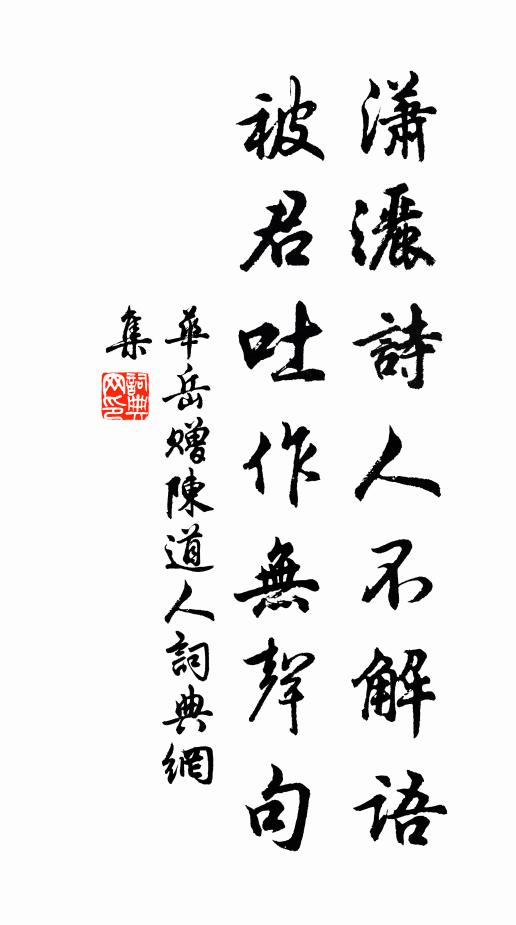 瀟灑詩人不解語
被君吐作無聲句
華岳贈陳道人詞典網
集
詞典
网印